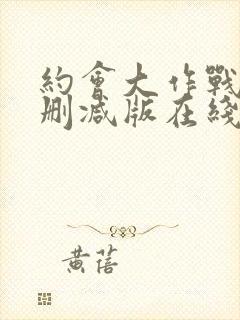 約會大作戰
刪減版在綫
黄蓓